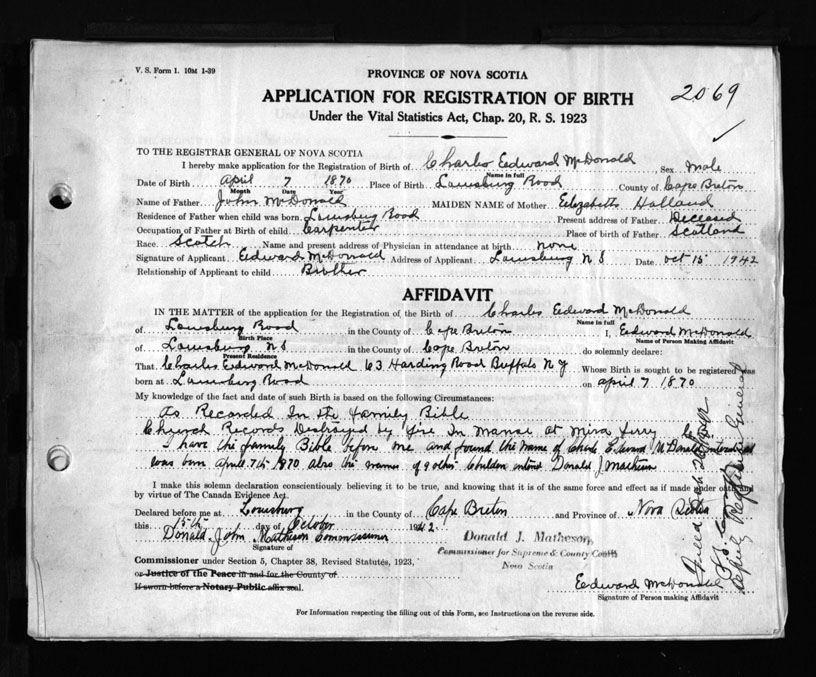 V. S. Form 1. 10M 1-39
PROVINCE OF NOVA SCOTIA
APPLICATION FOR REGISTRATION OF BIRTH
2069
Under the Vital Statistics Act, Chap. 20, R. S. 1923
TO THE REGISTRAR GENERAL OF NOVA SCOTIA
I hereby make application for the Registration of Birth of Charles Edward McDonald Sex Male
Name in full
Date of Birth April 7 1870 Place of Birth Louisburg Road County of Cape Breton
Month Date Year
Name of Father John McDonald MAIDEN NAME of Mother Elizabeth Holland
Residence of Father when child was born Louisburg Road Present address of Father Deceased
Occupation of Father at Birth of child Carpenter Place of birth of Father Scotland
Race Scotch Name and present address of Physician in attendance at birth none
Signature of Applicant Edward McDonald Address of Applicant Louisburg N S Date Oct 15 1942
Relationship of Applicant to child Brother
AFFIDAVIT
IN THE MATTER of the application for the Registration of the Birth of Charles Edward McDonald
Name in full
of Louisburg Road in the County of Cape Breton I, Edward McDonald
Birth Place Name of Person Making Affidavit
of Louisburg N S in the County of Cape Breton do solemnly declare:
Present Residence
That Charles Edward McDonald 63 Harding Road Buffalo N Y Whose Birth is sought to be registered was
born at Louisburg Road on April 7 1870
My knowledge of the fact and date of such Birth is based on the following Circumstances:
As Recorded In the family Bible
Church Records Destroyed by fire In Manse at Mira Ferry
I have the family Bible before me and found the name of Charles Edward McDonald
was born April 7th 1870 also the names of 9 other Children Donald J Matheson
I make this solemn declaration conscientiously believing it to be true, and knowing that it is of the same force and effect as if made under oath and
by virtue of The Canada Evidence Act.
Declared before me at Louisburg in the County of Cape Breton and Province of Nova Scotia
this 15th day of October 1942
Donald John Matheson Commissioner
Signature of
Donald J. Matheson,
Commissioner for Supreme & County Courts
Nova Scotia
Commissioner under Section 5, Chapter 38, Revised Statutes, 1923,
or Justice of the Peace in and for the County of
If sworn before a Notary Public affix seal.
Edward McDonald
Signature of Person making Affidavit
For Information respecting the filling out of this Form, see Instructions on the reverse side.
Deputy Registrar General